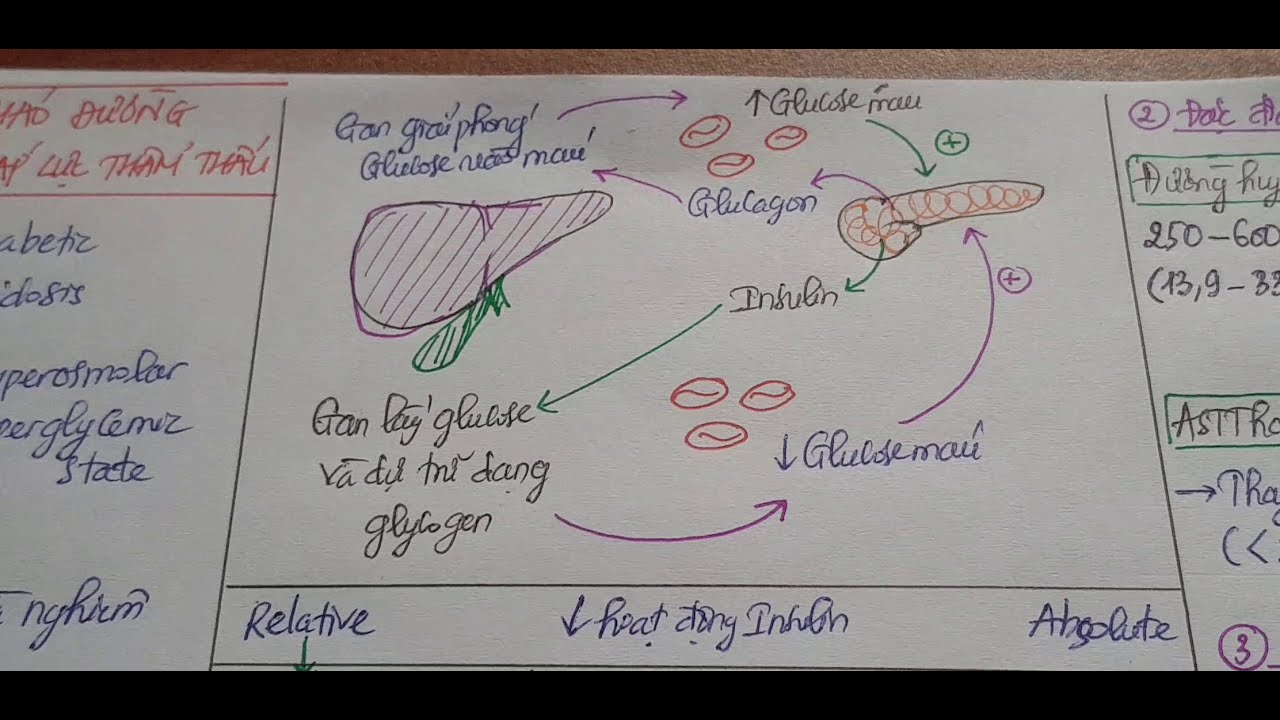 ĐƯỜNG
LỰC THẨM THẤU
abetic
idosis
yperosmolar
perglycemic
State
nghiệm
Gan giải phóng
Glucose vào máu
↑ Glucose máu
+
Glucagon
Insulin
Gan lấy glucose
và dự trữ dạng
glycogen
+
↓ Glucose máu
Relative
↓ hoạt động Insulin
Absolute
② Đặc
Đường huy
250 – 600
(13,9 – 33
ASTTh
→ Tha
(<
③